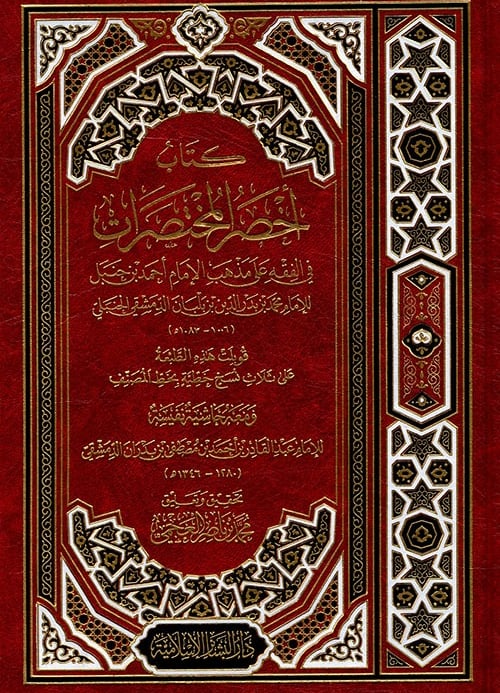 كتاب
أخصر المختصرات
في الفقه على مذهب الإمام أحمد بن حنبل
للإمام محمد بن بدر الدين بن بلبان الدمشقي الحنبلي
(١٠٠٦ - ١٠٨٣ه)
قوبلت هذه الطبعة
على ثلاث نسخ خطية بخط المصنف
ومعه حاشية نفيسة
للإمام عبد القادر بن أحمد بن مصطفى بن بدران الدمشقي
(١٢٨٠ - ١٣٤٦ه)
تحقيق وتعليق
محمد بن ناصر العجمي
دار البشائر الإسلامية